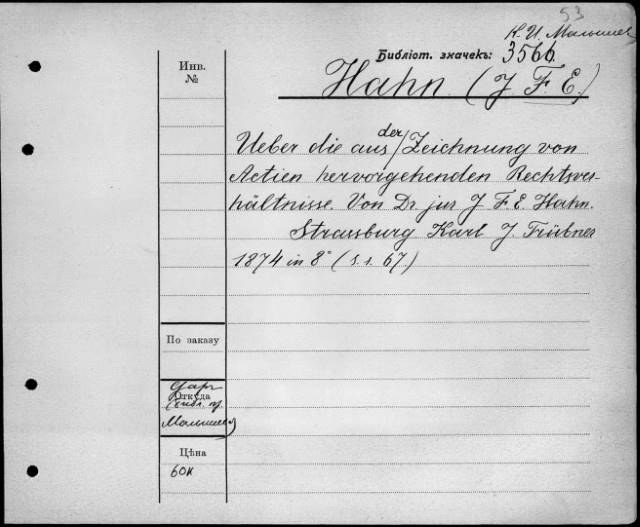 53
К. И. Малышев
Инв. №
Библіот. значекъ: 3566.
Hahn (J F E.)
Ueber die aus der Zeichnung von
Actien hervorgehenden Rechtsver
hältnisse. Von Dr. jur J. F. E. Hahn.
Strassburg Karl J. Trübner
1874 in 8° (s. s. 67.)
По заказу
Откуда
Даръ
Малышева
Цѣна
60к